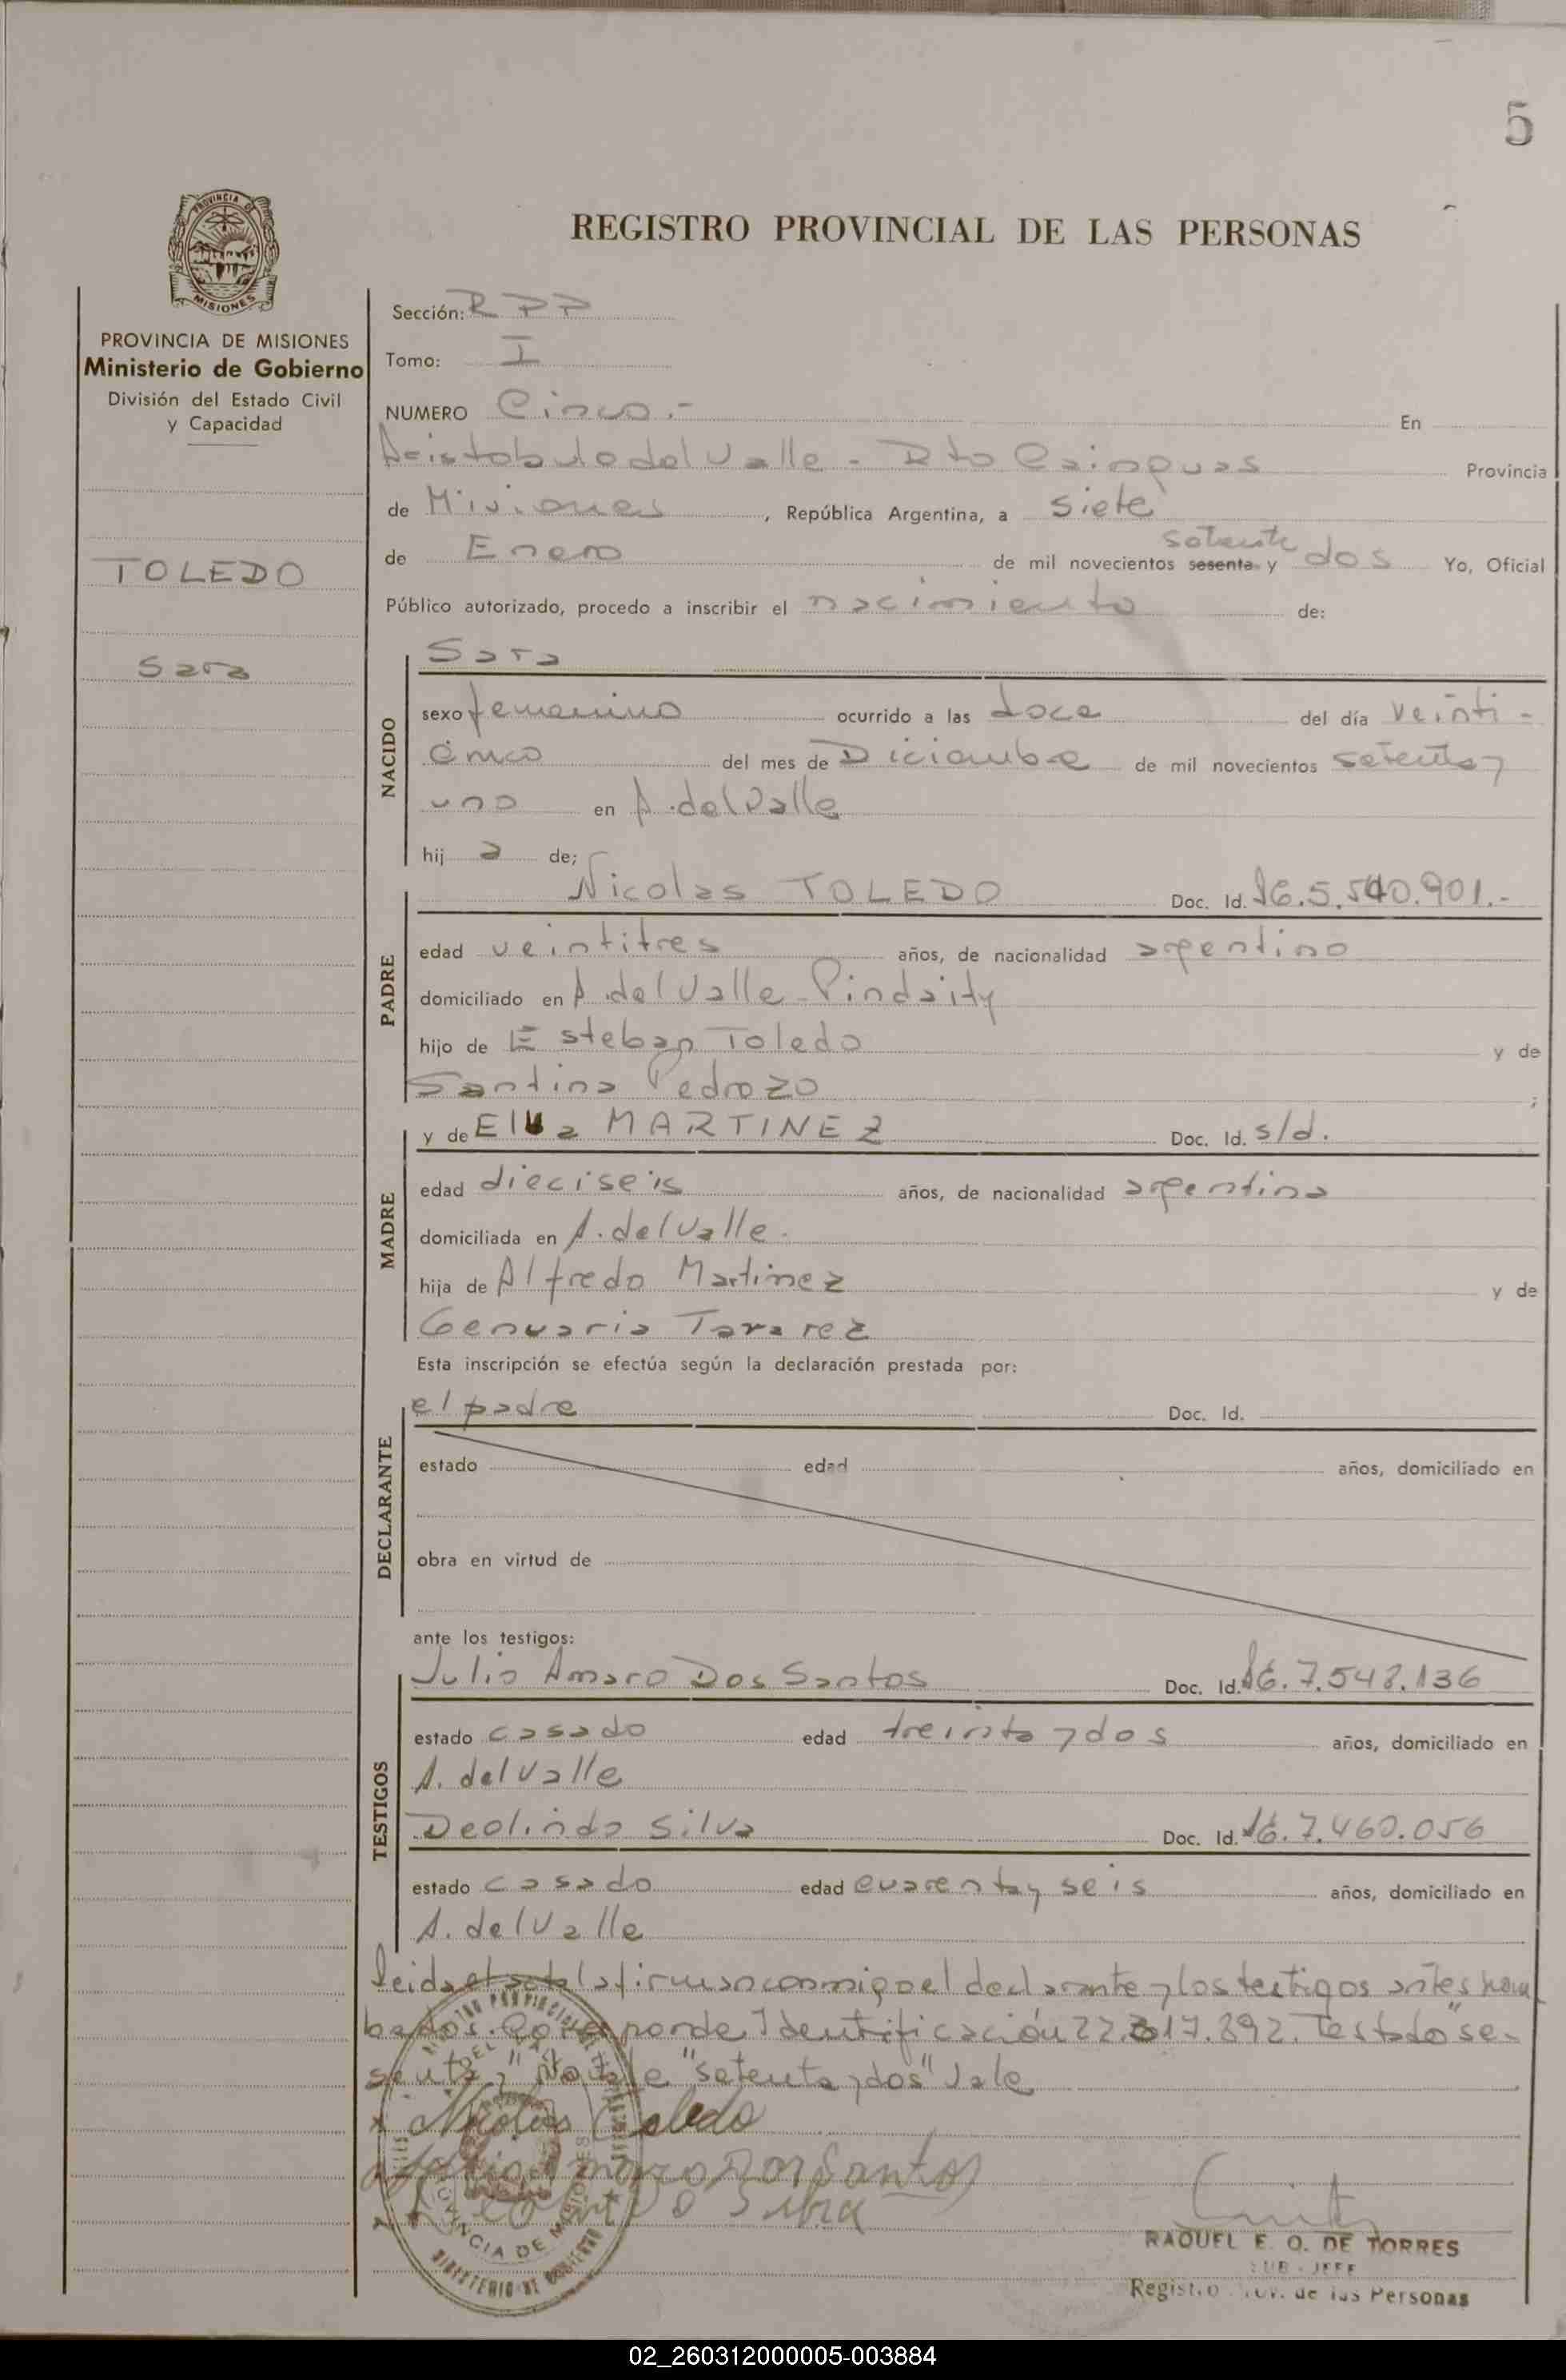 5
REGISTRO PROVINCIAL DE LAS PERSONAS
PROVINCIA DE MISIONES
PROVINCIA DE MISIONES
Ministerio de Gobierno
División del Estado Civil
y Capacidad
TOLEDO
Sara
Sección: RPP
Tomo: I
NUMERO Cinco.- En
Aristobulo del Valle - Dto Cainguas Provincia
de Misiones, República Argentina, a siete
de Enero de mil novecientos sesenta y setenta dos Yo, Oficial
Público autorizado, procedo a inscribir el nacimiento de:
NACIDO
Sara
sexo femenino ocurrido a las doce del día veinti-
cinco del mes de Diciembre de mil novecientos setenta y
uno en A. del Valle
hij a de;
PADRE
Nicolas TOLEDO Doc. Id. 5.540.901.-
edad veintitres años, de nacionalidad argentino
domiciliado en A. del Valle - Pindaity
hijo de Esteban Toledo y de
Santina Pedrozo ;
MADRE
y de MARTINEZ Doc. Id. s/d.
edad dieciseis años, de nacionalidad argentina
domiciliada en A. del Valle.
hija de Alfredo Martinez y de
Genuaria Tavarez
Esta inscripción se efectúa según la declaración prestada por:
DECLARANTE
el padre Doc. Id.
estado edad años, domiciliado en
obra en virtud de
ante los testigos:
TESTIGOS
Julio Amaro Dos Santos Doc. Id. 7.548.136
estado casado edad treinta y dos años, domiciliado en
A. del Valle
Deolindo Silva Doc. Id. 7.460.056
estado casado edad cuarenta y seis años, domiciliado en
A. del Valle
Leida el acta la firman conmigo el declarante y los testigos antes nom
bados. Corresponde Identificación 22.317.892. Testado "se-
senta y" No vale "setenta y dos" Vale
Nicolas Toledo
Julio Amaro Dos Santos
Deolindo Silva
PROVINCIA DE MISIONES
MINISTERIO DE GOBIERNO
RAQUEL E. O. DE TORRES
SUB - JEFE
Registro Prov. de las Personas
02_260312000005-003884